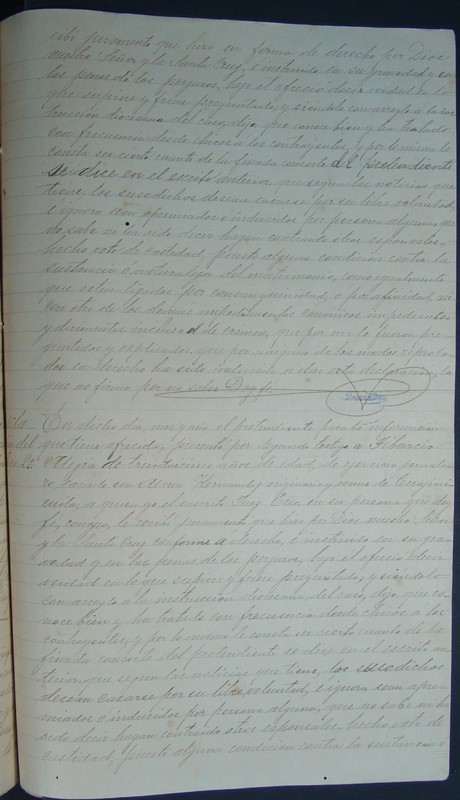 cibí juramento que hizo en forma de derecho por Dios
nuestro Señor y la Santa Cruz, é instruido en su gravedad y en
las penas de los perjuros, bajo el ofreció decir verdad en lo
que supiere y fuere preguntado, y siéndole con arreglo a la ins
trucción diocesana del caso, dijo que conoce bien y ha tratado
con frecuencia desde chicos a los contrayentes, y por lo mismo le
consta ser cierto cuanto de la finada consorte del pretendiente
se dice en el escrito anterior, que segun las noticias que
tiene, los susodichos desean casarse por su libre voluntad,
é ignora sean apremiados o inducidos por persona alguna, que
no sabe ni ha oido decir hayan contraido otros esponsales,
hecho voto de castidad, puesto alguna condición contra la
sustancia o naturaleza del matrimonio, como igualmente
que esten ligados por consanguinidad, o por afinidad, ni
con otro de los demas impedimentos canonicos impedientes
y dirimentes incluso el de crimen, que por mi le fueron pre
guntados y explicados, que por ninguno de los modos reproba
dos en derecho ha sido inducido a dar esta declaracion, la
que no firma por no saber Doy fe.
En dicho dia, mes y año el pretendiente para la informacion
que tiene ofrecida, presentó por segundo testigo a
de treinta cinco años de edad, de ejercicio jornale
ro, casado con Hernandez originario y vecino de
a quien yo el suscrito Juez Ecco. en su persona que doy
fe, conozco, le recibí juramento que hizo por Dios nuestro Señor
y la Santa Cruz conforme a derecho, é instruido en su gra
vedad y en las penas de los perjuros, bajo el ofreció decir
verdad en lo que supiere y fuere preguntado, y siéndolo
con arreglo a la instruccion diocesana del caso, dijo, que co
noce bien y ha tratado con frecuencia desde chicos a los
contrayentes, y por lo mismo le consta ser cierto cuanto de la
finada consorte del pretendiente se dice en el escrito an
terior, que segun las noticias que tiene, los susodichos
desean casarse por su libre voluntad, é ignora sean apre
miados o inducidos por persona alguna, que no sabe ni ha
oido decir hayan contraido otros esponsales, hecho voto de
castidad, puesto alguna condicion contra la sustancia o